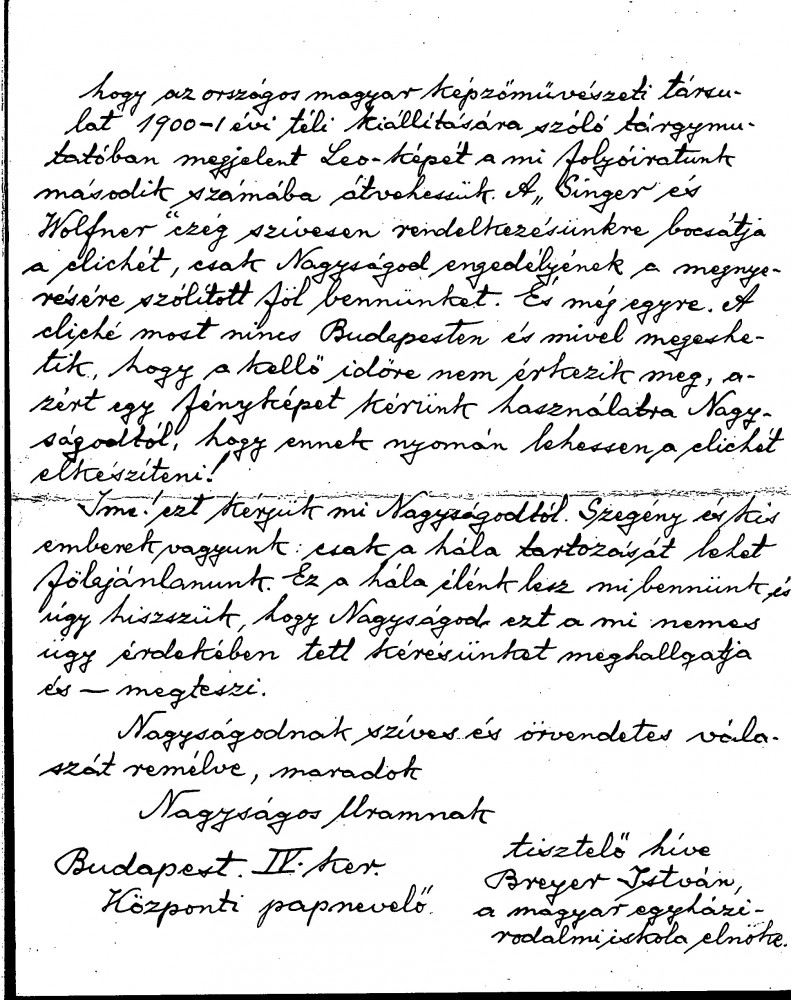 hogy az országos magyar képzőművészeti társu-
lat 1900-1 évi téli kiállítására szóló tárgymu-
tatóban megjelent Leo-képét a mi folyóiratunk
második számába átvehessük. A „Singer és
Wolfner“ czég szívesen rendelkezésünkre bocsátja
a clichét, csak Nagyságod engedélyének a megnye-
résére szólított föl bennünket. És még egyre. A
cliché most nincs Budapesten és mivel megeshe-
tik, hogy a kellő időre nem érkezik meg, a-
zért egy fényképet kérünk használatra Nagy-
ságodtól, hogy ennek nyomán lehessen a clichét
elkészíteni!
Ime! ezt kérjük mi Nagyságodtól. Szegény és kis
emberek vagyunk: csak a hála tartozását lehet
fölajánlanunk. Ez a hála élénk lesz mi bennünk, és
úgy hiszszük, hogy Nagyságod ezt a mi nemes
ügy érdekében tett kérésünket meghallgatja
és — megteszi.
Nagyságodnak szíves és örvendetes vála-
szát remélve, maradok
Nagyságos Uramnak
tisztelő híve
Budapest. IV. ker.
Breyer István,
Központi papnevelő.
a magyar egyházi-
rodalmi iskola elnöke.